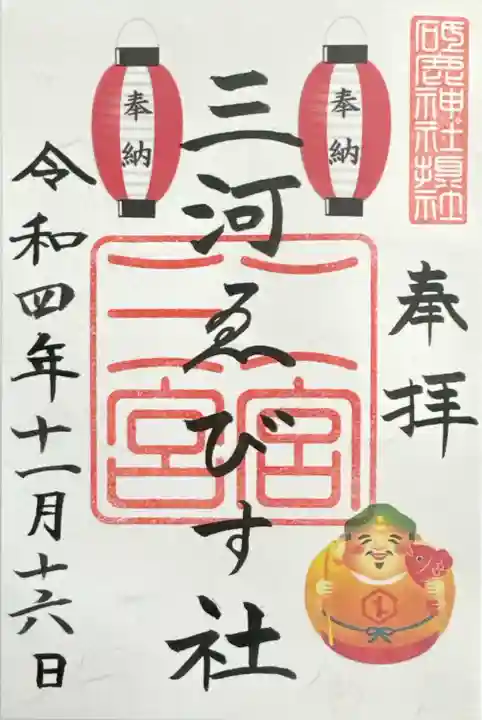 砥鹿神社摂社
奉拝
奉納
奉納
三河ゑびす社
令和四年十一月十六日